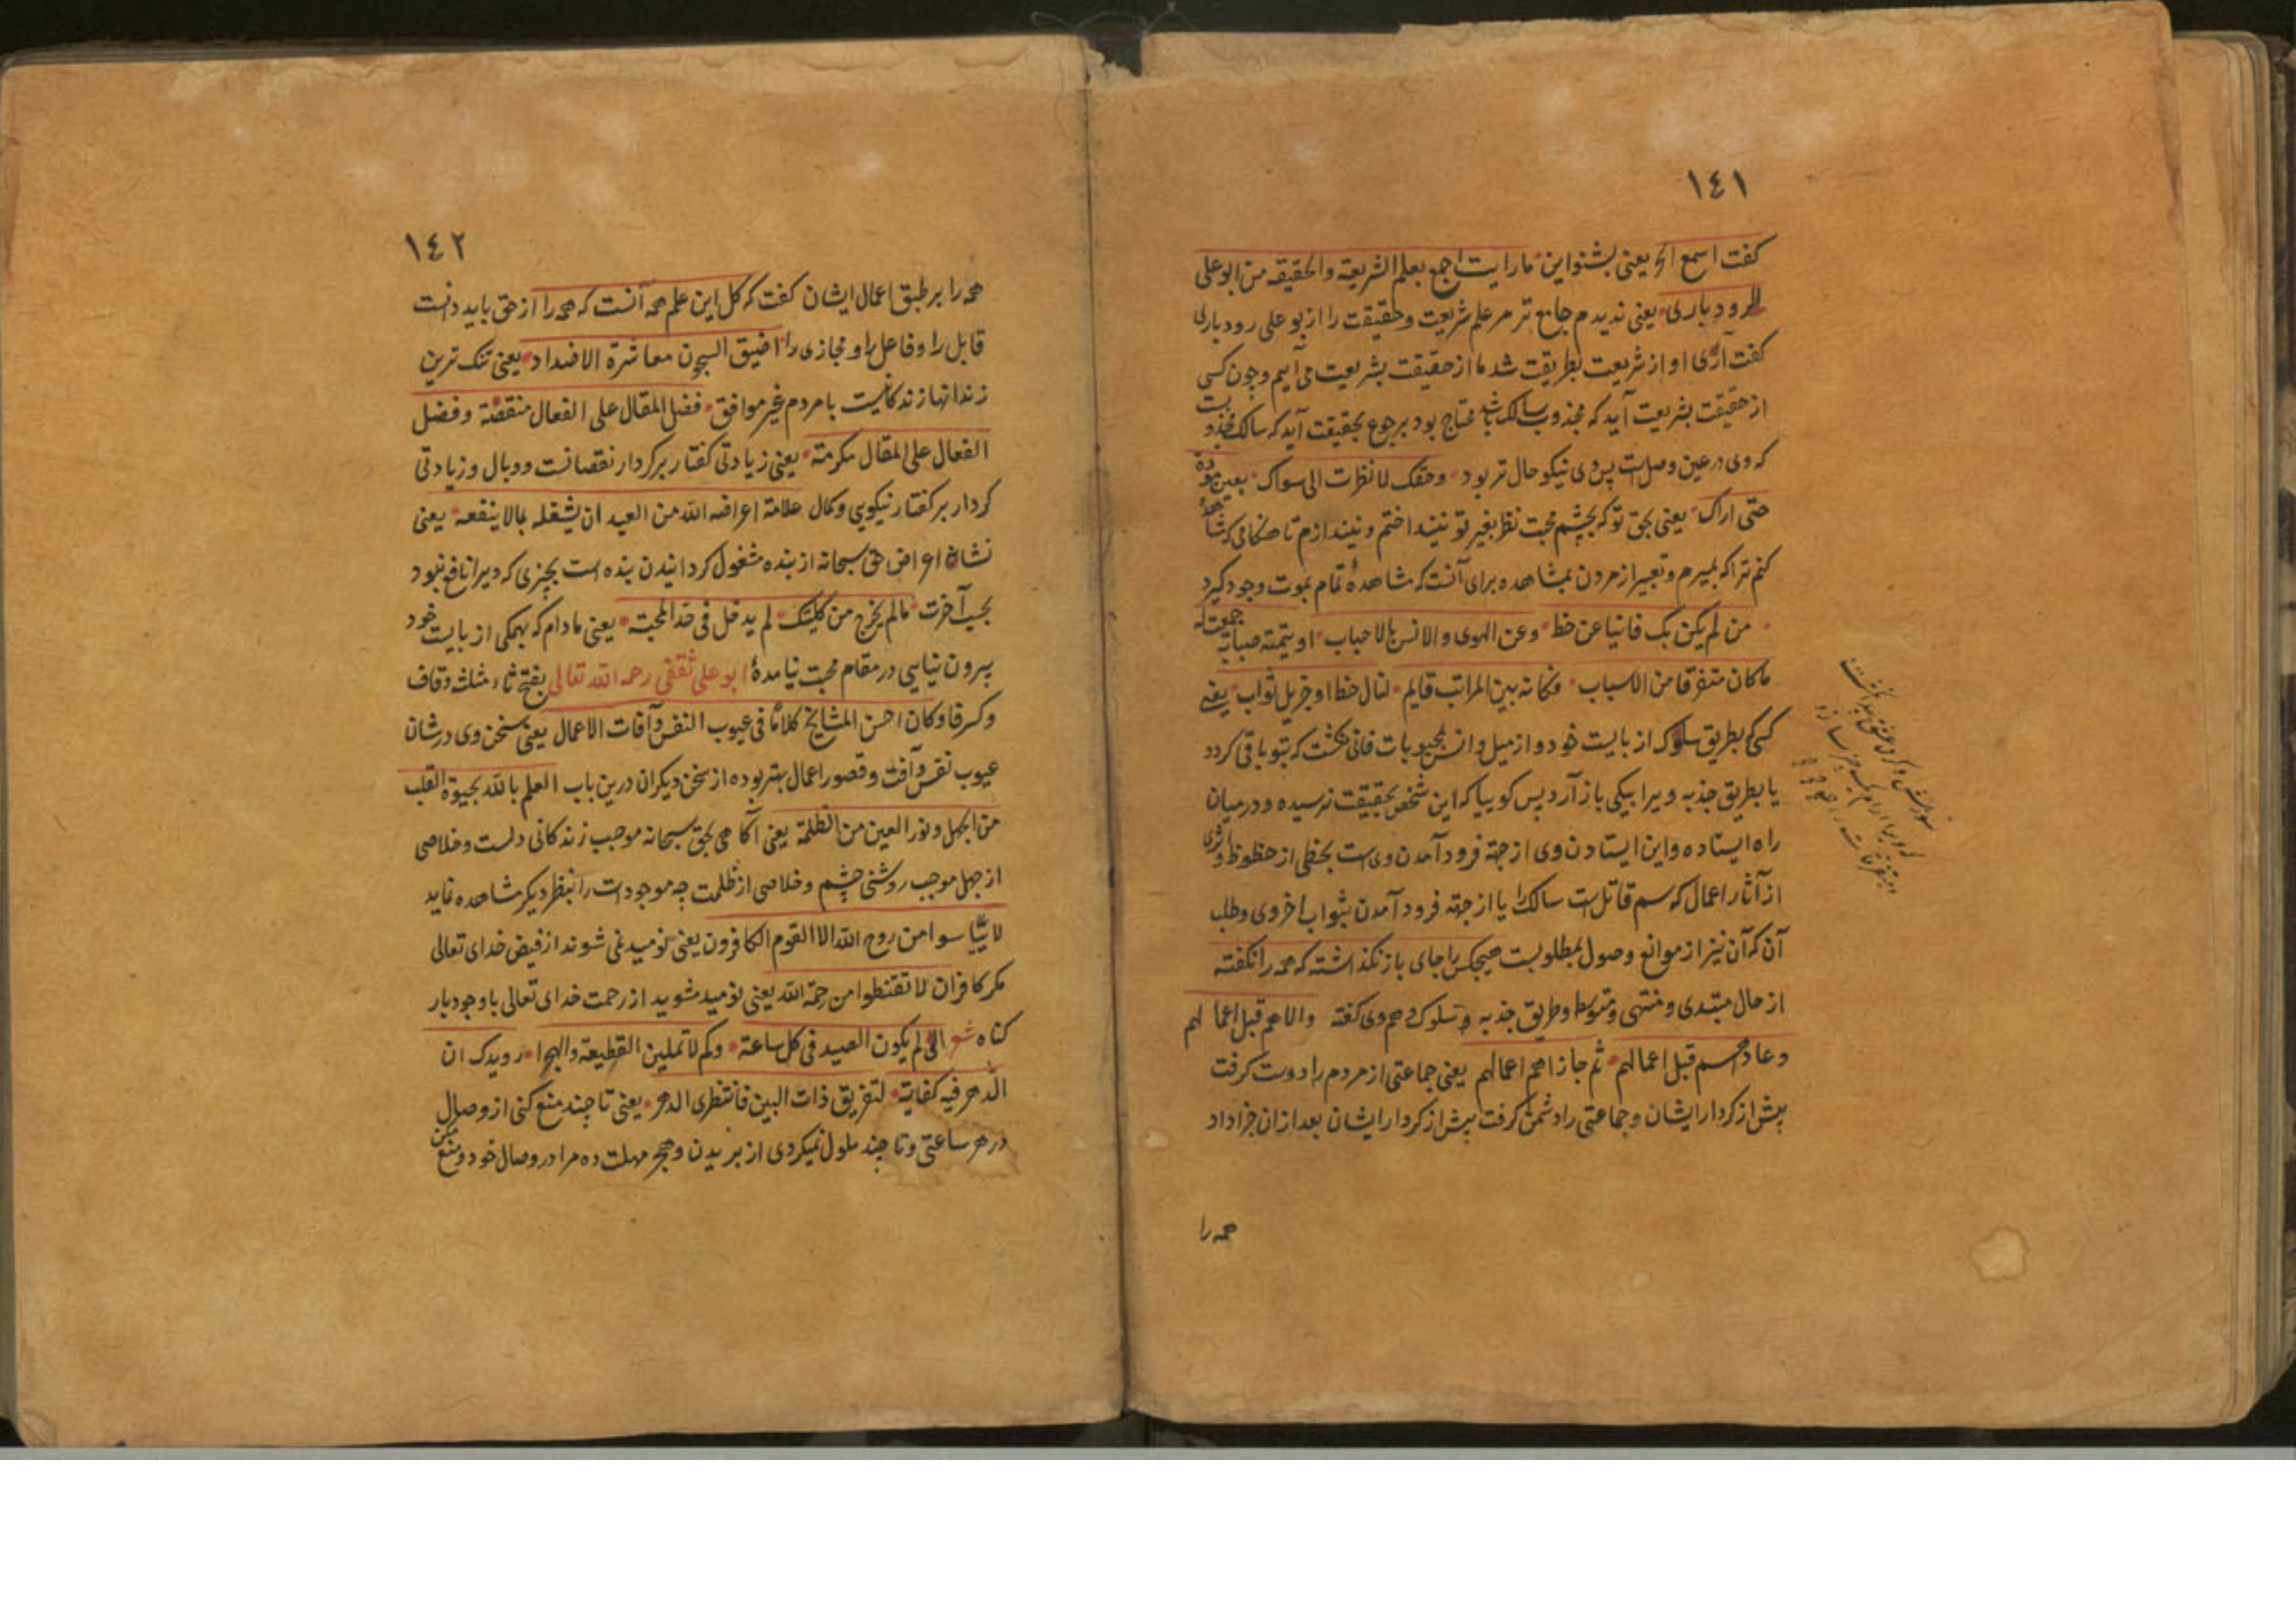 ١٤١
كفت اسمع الخ يعنى بشنو اين ما رايت اجمع بعلم الشريعة والحقيقه من ابو على
الرودبارى يعنى نديدم جامع تر مر علم شريعت وحقيقت را از بو على رودبارى
كفت آرى او از شريعت بطريقت شد ما از حقيقت بشريعت مى آييم وچون كسى
از حقيقت بشريعت آيد كه مجذوب سالك باشد محتاج بود برجوع بحقيقت آيد كه سالك
كه وى در عين وصلست پس وى نيكو حال تر بود وحقك لا نظرت الى سواك بعين مودة
حتى اراك يعنى بحق تو كه بچشم محبت نظر بغير تو نينداختم ونيندازم تا هنكامى كه مشاهدهٔ
كنم ترا كه بميرم وتعبير از مردن بمشاهده براى آنست كه مشاهدهٔ تمام بموت وجود كيرد
من لم يكن بك فانيا عن حظ وعن الهوى والانس بالاحباب او يتمته صبابة جمعت له
ما كان متفرقا من الاسباب فكانه بين المراتب قايم لنال حظ او جزيل ثواب يعنى
كسى كه بطريق سلوك از بايست خود واز ميل وانس بمحبوبات فانى نكشت كه بتو باقى كردد
يا بطريق جذبه ويرا بيكى باز آرد پس كوييا كه اين شخص بحقيقت نرسيده ودر ميان
راه ايستاده واين ايستادن وى از جهة فرود آمدن وى است بحظى از حظوظ واثرى
از آثار اعمال كه سم قاتل است سالك را يا از جهة فرود آمدن بثواب اخروى وطلب
آن كه آن نيز از موانع وصول بمطلوبست هيچكس را جاى باز نكذاشته كه همه را نكفته
از حال مبتدى ومنتهى ومتوسط وطريق جذبه وسلوك وهم وى كفته والاهم قبل اعمالهم
وعاداهم قبل اعمالهم ثم جازاهم اعمالهم يعنى جماعتى از مردم را دوست كرفت
پيش از كردار ايشان وجماعتى را دشمن كرفت پيش از كردار ايشان بعد از ان جزا داد
همه را
١٤٢
همه را بر طبق اعمال ايشان كفت كه كل اين علم همه آنست كه همه را از حق بايد دانست
قابل را وفاعل را ومجازى را اضيق السجون معاشرة الاضداد يعنى تنك ترين
زندانها زندكانيست با مردم غير موافق فضل المقال على الفعال منقصة وفضل
الفعال على المقال مكرمة يعنى زيادتى كفتار بر كردار نقصانست ووبال وزيادتى
كردار بر كفتار نيكويى وكمال علامة اعراض الله من العبد ان يشغله بما لا ينفعه يعنى
نشان اعراض حق سبحانه از بنده مشغول كردانيدن بنده است بچيزى كه ويرا نافع نبود
بحسب آخرت ما لم يخرج من كليتك لم يدخل فى حد المحبة يعنى مادام كه بهمكى از بايست خود
بيرون نيايى در مقام محبت نيامدهٔ ابو على ثقفى رحمه الله تعالى بفتح ثاء مثلثه وقاف
وكسر فا وكان احسن المشايخ كلاما فى عيوب النفس وآفات الاعمال يعنى سخن وى در شان
عيوب نفس وآفت وقصور اعمال بهتر بوده از سخن ديكران درين باب العلم بالله بحيوة القلب
من الجهل ونور العين من الظلمة يعنى آكاهى بحق سبحانه موجب زندكانى دلست وخلاصى
از جهل موجب روشنى چشم وخلاصى از ظلمت چه موجودات را بنظر ديكر مشاهده نمايد
لا يياسوا من روح الله الا القوم الكافرون يعنى نوميد نمى شوند از فيض خداى تعالى
مكر كافران لا تقنطوا من رحمة الله يعنى نوميد مشويد از رحمت خداى تعالى با وجود بار
كناه شعر الى لم يكون الصد فى كل ساعة وكم لا تملين القطيعة والهجرا رويدك ان
الدهر فيه كفاية لتفريق ذات البين فانتظرى الدهر يعنى تا چند منع كنى از وصال
در هر ساعتى وتا چند ملول نميكردى از بريدن وهجر مهلت ده مرا در وصال خود ومنع مكن